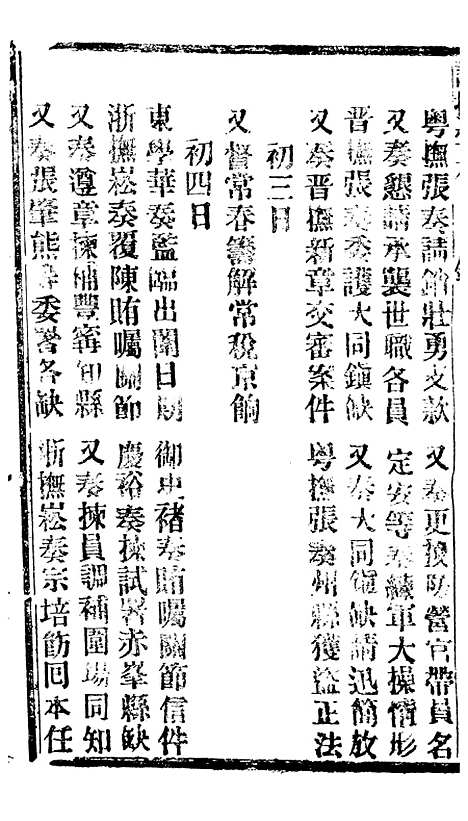 粤撫張奏請銷壯勇支款
又奏更換防營官帶員名
又奏懇請承襲世職各員
定安等奏練軍大操情形
晋撫張奏委護大同鎮缺
又奏大同鎮缺請迅簡放
又奏晋撫新章交審案件
粤撫張奏州縣獲盜正法
初三日
又督常春奏解常稅京餉
初四日
東學華奏監臨出闈日期
御史褚奏賄囑關節信件
浙撫崧奏覆陳賄囑關節
慶裕奏揀試署赤峯縣缺
又奏遵章揀補豐寧知縣
又奏揀員調補圍場同知
又奏張肇熊等委署各缺
浙撫崧奏宗培飭回本任